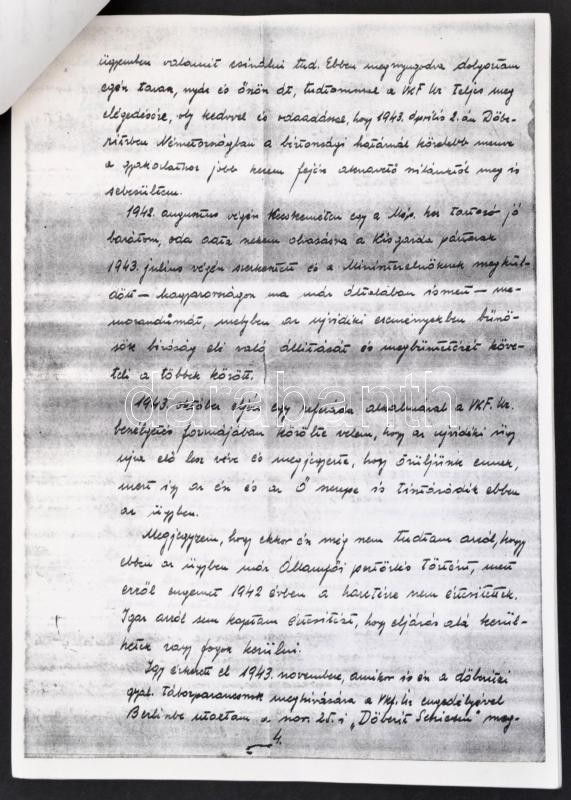 ügyemben valamit csinálni tud. Ebben megnyugodva dolgoztam
egész tavasz, nyár és őszön át, tudtommal a VKF. Ur teljes meg
elégedésére, oly kedvvel és odaadással, hogy 1943. április 2.-án Döbe-
ritzben Németországban a biztonsági határnál közelebb menve
a gyakorlathoz jobb kezem fején aknavető szilánktól meg is
sebesültem.
1942. augusztus végén Kecskeméten egy a Nép. hez tartozó jó
barátom, oda adta nekem olvasásra a Kisgazda pártnak
1943. julius végén szerkesztett és a Miniszterelnöknek megkül-
dött – Magyarországon ma már általában ismert – me-
morandumát, melyben az ujvidéki eseményekben bünö-
sök biróság elé való állitását és megbüntetését köve-
teli a többek között.
1943. október elején egy referáda alkalmával a VKF. Ur.
beszélgetés formájában közölte velem, hogy az ujvidéki ügy
ujra elő lesz véve és megjegyezte, hogy örüljünk ennek,
mert igy az én és az Ő szerepe is tisztázódik ebben
az ügyben.
Megjegyzem, hogy ekkor én még nem tudtam arról, hogy
ebben az ügyben már Államfői pertörlés történt, mert
erről engemet 1942 évben a haretérre nem értesitettek.
Igaz arról sem kaptam értesitést, hogy eljárás alá kerül-
hetek vagy fogok kerülni.
Igy érkezett el 1943. november, amikor is én a döberitzi
gyal. táborparancsnok meghivására a Vkf. Ur engedélyével
Berlinbe utaztam a nov. 25.-i "Döberitz Schiessen" meg-
4.
darabanth